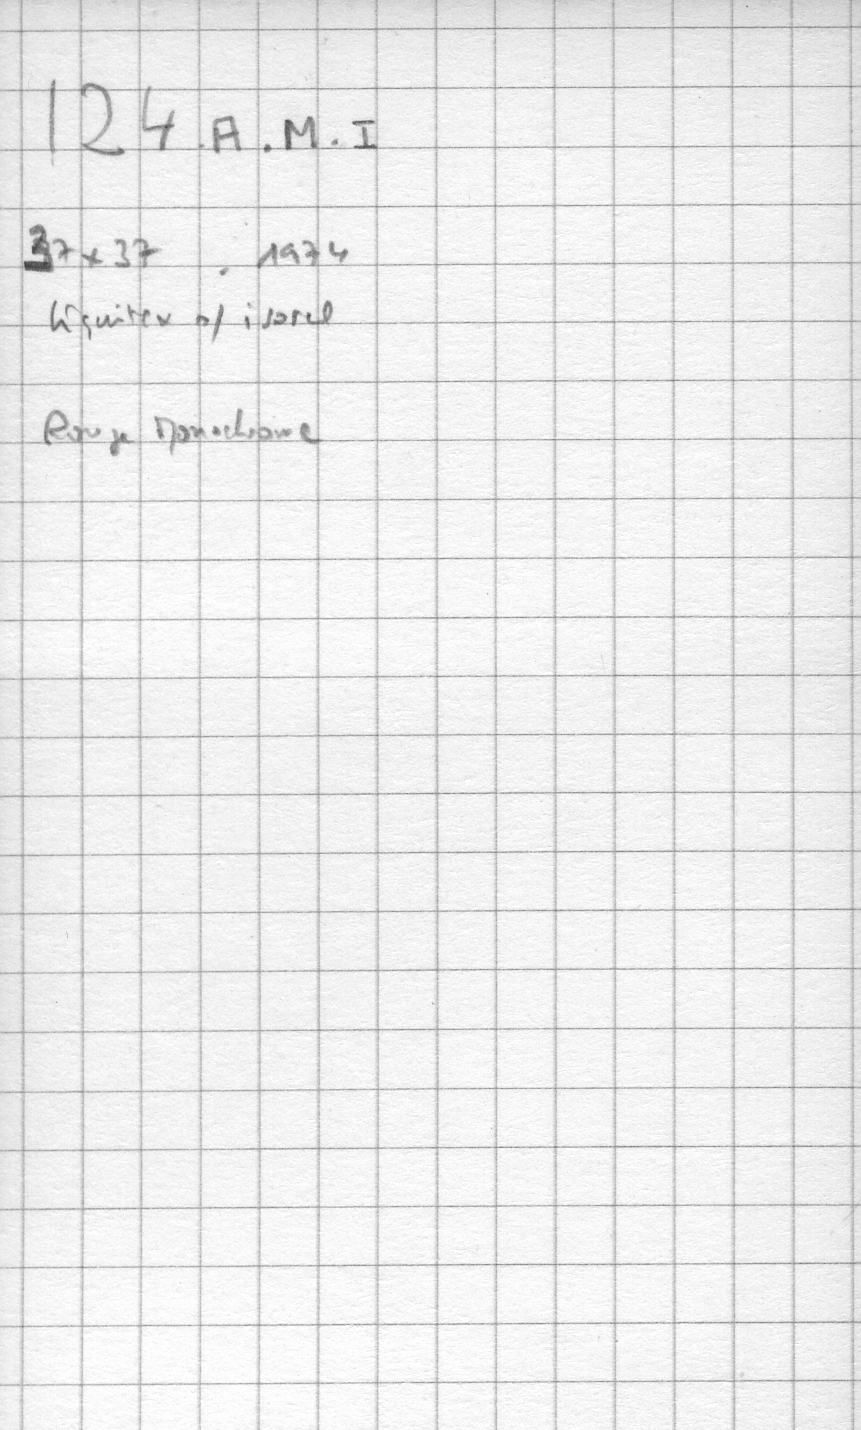 124.A.M.I
37 x 37 . 1974
Liquitex s/ isorel
Rouge Monochrome